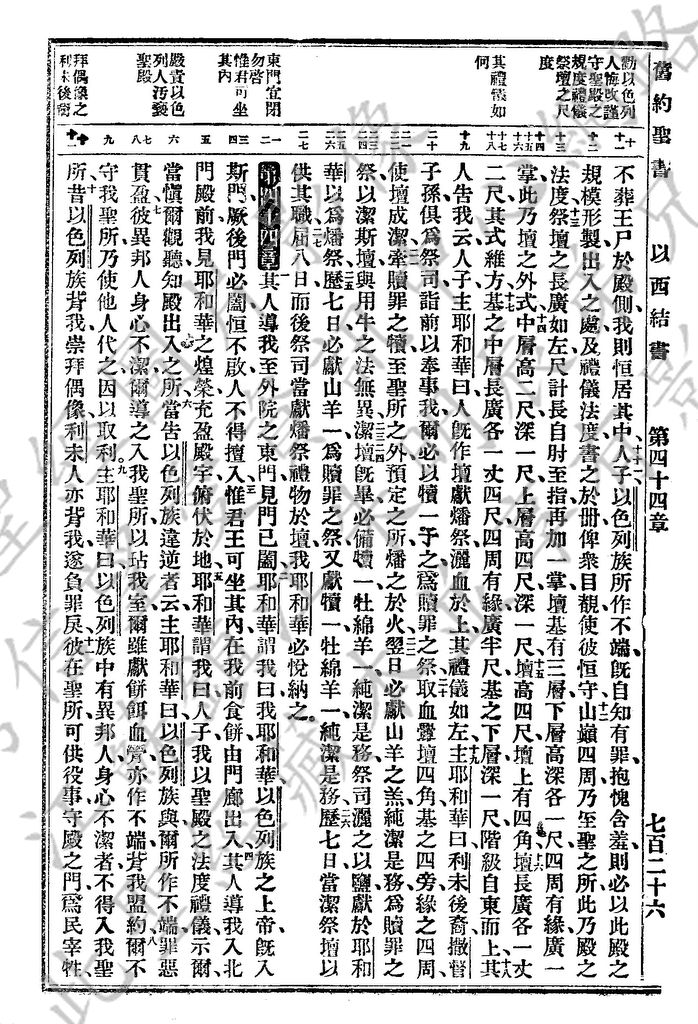 舊約聖書 以西結書 第四十四章 七百二十六
勸以色列
人悔改謹
守聖殿之
規度禮儀
祭壇之尺
度
其禮儀如
何
東門宜閉
勿啓
惟君可坐
其內
殿責以色
列人汚褻
聖殿
拜偶像之
利未後裔
不葬王尸於殿側我則恒居其中人子以色列族所作不端旣自知有罪抱愧含羞則必以此殿之
規模形製出入之處及禮儀法度書之於册俾衆目覩使彼恒守山巓四周乃至聖之所此乃殿之
法度祭壇之長廣如左尺計長自肘至指再加一掌壇基有三層下層高深各一尺四周有緣廣一
掌此乃壇之外式中層高二尺深一尺上層高四尺深一尺壇高四尺壇上有四角壇長廣各一丈
二尺其式維方基之中層長廣各一丈四尺四周有緣廣半尺基之下層深一尺階級自東而上其
人告我云人子主耶和華曰人旣作壇獻燔祭灑血於上其禮儀如左主耶和華曰利未後裔撒督
子孫俱爲祭司詣前以奉事我爾必以犢一予之爲贖罪之祭取血釁壇四角基之四旁緣之四周
使壇成潔牽贖罪之犢至聖所之外預定之所燔之於火翌日必獻山羊之羔純潔是務爲贖罪之
祭以潔斯壇與用牛之法無異潔壇旣畢必備犢一牡綿羊一純潔是務祭司灑之以鹽獻於耶和
華以爲燔祭歷七日必獻山羊一爲贖罪之祭又獻犢一牡綿羊一純潔是務歷七日當潔祭壇以
供其職屆八日而後祭司當獻燔祭禮物於壇我耶和華必悅納之
第四十四章 其人導我至外院之東門見門已闔耶和華謂我曰我耶和華以色列族之上帝旣入
斯門厥後門必闔恒不啟人不得擅入惟君王可坐其內在我前食餅由門廊出入其人導我入北
門殿前我見耶和華之煌榮充盈殿宇俯伏於地耶和華謂我曰人子我以聖殿之法度禮儀示爾
當愼爾觀聽知殿出入之所當告以色列族違逆者云主耶和華曰以色列族與爾所作不端罪惡
貫盈彼異邦人身心不潔爾導之入我聖所以玷我室爾雖獻餅餌血膋亦作不端背我盟約爾不
守我聖所乃使他人代之因以取利主耶和華曰以色列族中有異邦人身心不潔者不得入我聖
所昔以色列族背我崇拜偶像利未人亦背我遂負罪戾彼在聖所可供役事守殿之門爲民宰牲